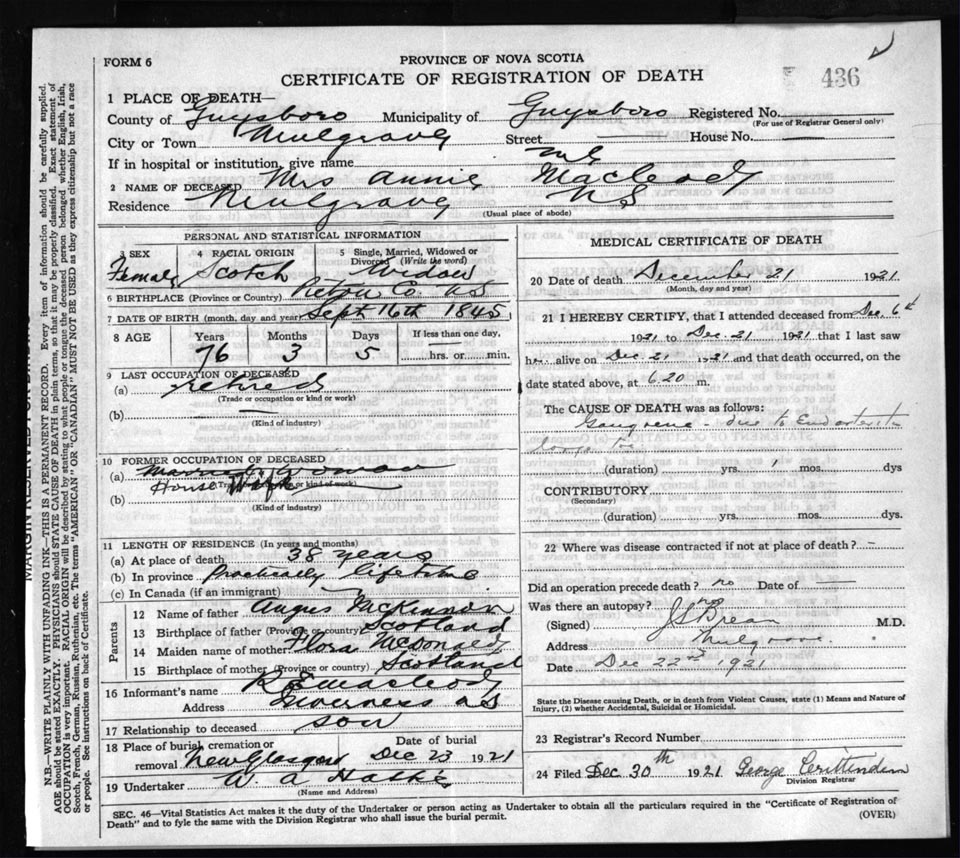 FORM 6
PROVINCE OF NOVA SCOTIA
CERTIFICATE OF REGISTRATION OF DEATH
436
1 PLACE OF DEATH—
County of Guysboro Municipality of Guysboro Registered No.
(For use of Registrar General only)
City or Town Mulgrave Street House No.
If in hospital or institution, give name
2 NAME OF DECEASED Mrs Annie MacLeod
Residence Mulgrave N S
(Usual place of abode)
PERSONAL AND STATISTICAL INFORMATION
3 SEX 4 RACIAL ORIGIN 5 Single, Married, Widowed or Divorced (Write the word)
Female Scotch Widow
6 BIRTHPLACE (Province or Country) Pictou Co. N S
7 DATE OF BIRTH (month, day and year) Sept 16th 1845
8 AGE Years Months Days If less than one day,
76 3 5 hrs. or min.
9 LAST OCCUPATION OF DECEASED
(a) retired
(Trade or occupation or kind or work)
(b)
(Kind of industry)
10 FORMER OCCUPATION OF DECEASED
(a) Married Woman
(b) House Wife
(Kind of industry)
11 LENGTH OF RESIDENCE (In years and months)
(a) At place of death 38 years
(b) In province practically lifetime
(c) In Canada (if an immigrant)
Parents
12 Name of father Angus McKinnon
13 Birthplace of father (Province or country) Scotland
14 Maiden name of mother Flora McDonald
15 Birthplace of mother (Province or country) Scotland
16 Informant's name R E MacLeod
Address Inverness N S
17 Relationship to deceased son
18 Place of burial, cremation or removal New Glasgow Date of burial Dec 23 1921
19 Undertaker W. A
(Name and Address)
MEDICAL CERTIFICATE OF DEATH
20 Date of death December 21 1921
(Month, day and year)
21 I HEREBY CERTIFY, that I attended deceased from Dec 6th
1921 to Dec. 21 1921 that I last saw
h alive on Dec 21 1921 and that death occurred, on the
date stated above, at 6.20 m.
The CAUSE OF DEATH was as follows:
Gangrene - due to Endarteritis
(duration) yrs. 1 mos. dys
CONTRIBUTORY
(Secondary)
(duration) yrs. mos. dys.
22 Where was disease contracted if not at place of death? —
Did an operation precede death? no Date of —
Was there an autopsy? no
(Signed) M.D.
Address Mulgrave
Date Dec 22nd 1921
State the Disease causing Death, or in death from Violent Causes, state (1) Means and Nature of
Injury, (2) whether Accidental, Suicidal or Homicidal.
23 Registrar's Record Number
24 Filed Dec 30th 1921 George Crittenden
Division Registrar
SEC. 46—Vital Statistics Act makes it the duty of the Undertaker or person acting as Undertaker to obtain all the particulars required in the "Certificate of Registration of
Death" and to fyle the same with the Division Registrar who shall issue the burial permit.
(OVER)
N.B.—WRITE PLAINLY WITH UNFADING INK—THIS IS A PERMANENT RECORD. Every item of information should be carefully supplied.
AGE should be stated EXACTLY. PHYSICIANS should STATE CAUSE OF DEATH in plain terms, so that it may be properly classified. Exact statement of
OCCUPATION is very important. RACIAL ORIGIN will be described by stating to what people or tongue the deceased person belonged whether English, Irish,
Scotch, French, German, Russian, Ruthenian, etc. The terms "AMERICAN" or "CANADIAN" MUST NOT BE USED as they express citizenship but not a race
or people. See instructions on back of Certificate.